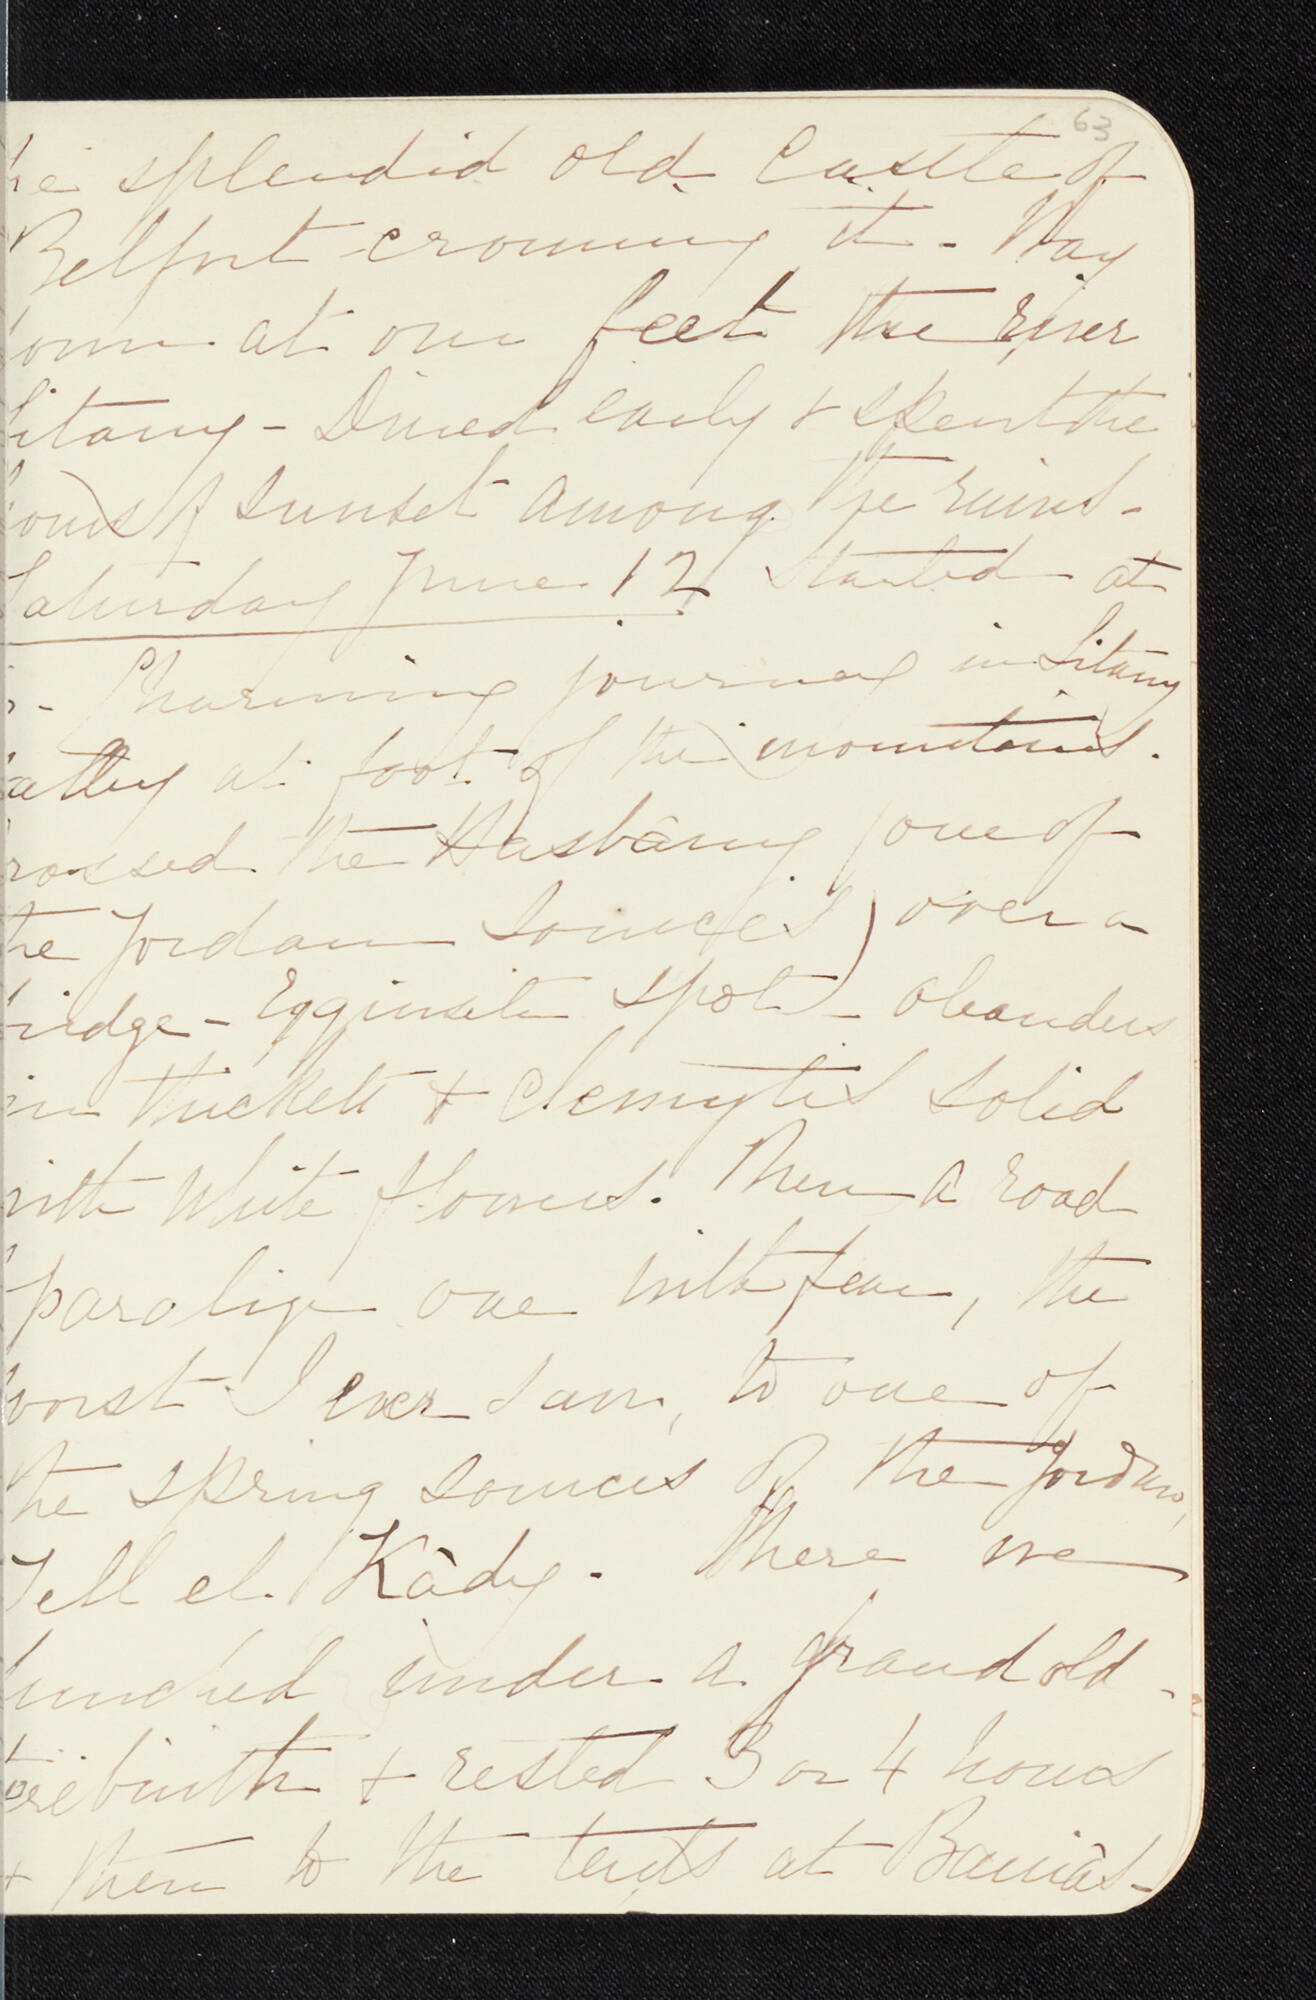 63
he splendid old Castle of
Belfort crowning it - Way
down at our feet the river
Litany - Dined early & spent the
hours of sunset among the ruins -
Saturday June 12 started at
5 - Charming journey in Litany
valley at foot of the mountains.
crossed the Hasbâny (one of
the Jordan sources) over a
bridge - Exquisite spot - oleanders
in thickets & clemytis solid
with white flowers. Then a road
paralize one with fear, the
worst I ever saw, to one of
the spring sources of the Jordan,
Tell el Kâdy. There we
lunched under a grand old
terebinth & rested 3 or 4 hours
& then to the tents at Baniâs -